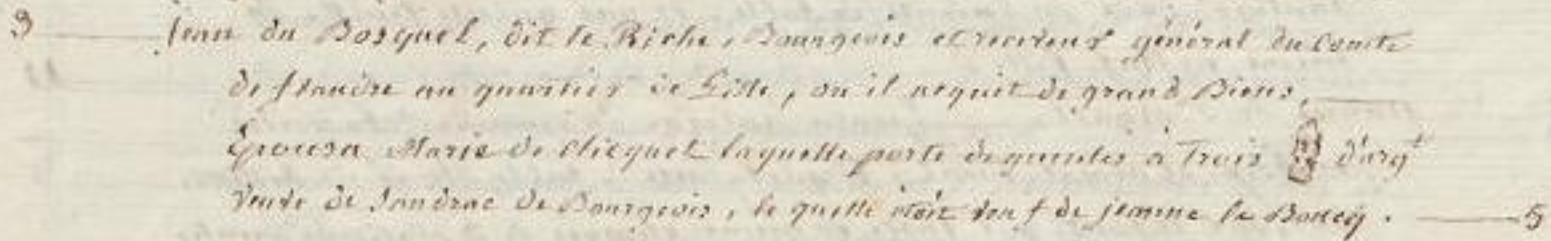 9 — Jean du Bosquel, dit le Riche, Bourgeois et receveur général du Comte
de flandre au quartier de Lille, ou il acquit de grand Biens,
Epousa Marie de Clicquet laquelle porte de gueules à Trois d'argt
Veuve de Jandrac de Bourgeois, le quelle etoit veuf de jeanne le Boucq. — 5